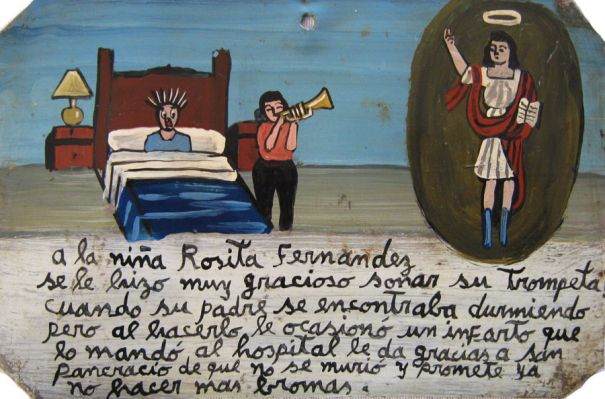 a la niña Rosita Fernandez
se le hizo muy gracioso sonar su trompeta
cuando su padre se encontraba durmiendo
pero al hacerlo le ocasionó un infarto que
lo mandó al hospital le da gracias a san
Pancracio de que no se murió y promete ya
no hacer mas bromas.